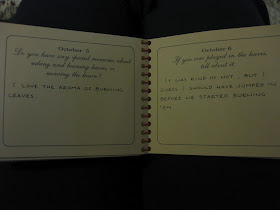 October 5
Do you have any special memories about
raking and burning leaves, or
mowing the lawn?
I LOVE THE AROMA OF BURNING
LEAVES.
October 6
If you ever played in the leaves,
tell about it.
IT WAS KIND OF HOT, BUT I
GUESS I SHOULD HAVE JUMPED IN
BEFORE WE STARTED BURNING
'EM.